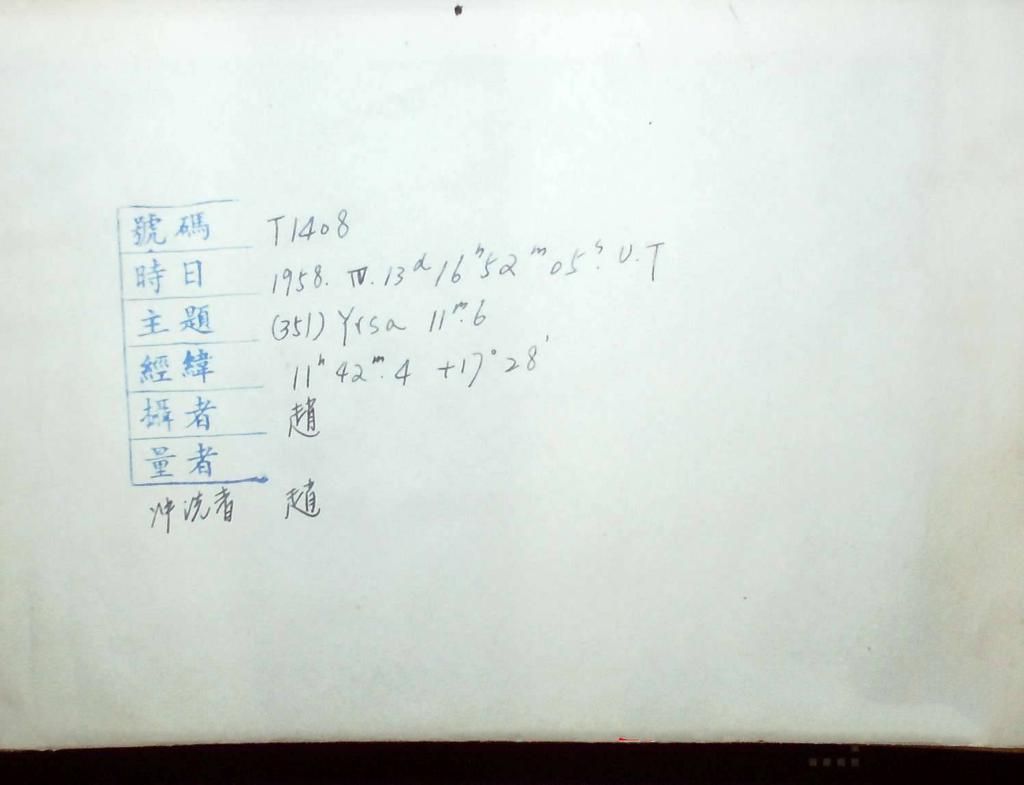 號碼 T1408
時日 1958. IV. 13ᵈ 16ʰ 52ᵐ 05ˢ. U.T
主題 (351) Yrsa 11ᵐ.6
經緯 11ʰ 42ᵐ.4 +17° 28'
攝者 趙
量者
冲洗者 趙